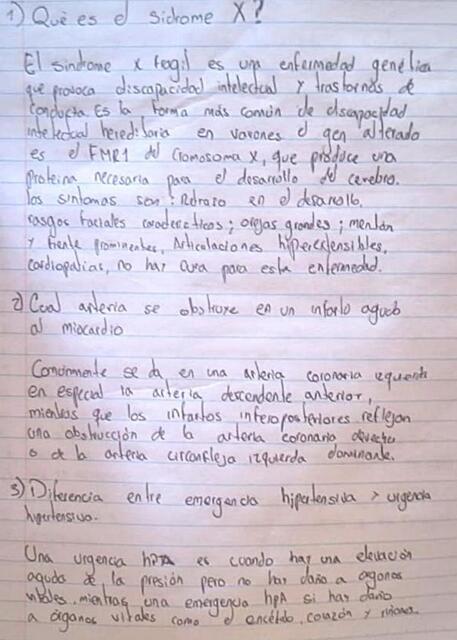 1) Què es el sidrome X?
El sindrome x fragil es una enfermedad genética
que provoca discapacidad intelectual y trastornos de
conducta. Es la forma más común de discapacidad
intelectual hereditaria en varones el gen alterado
es el FMR1 del cromosoma X, que produce una
proteina necesaria para el desarrollo del cerebro.
los sintomas son: Retrazo en el desarollo,
rasgos faciales caracteristicos; orejas grandes; mentón
y frente prominentes, Articulaciones hiperextensibles,
cardiopatias, no hay cura para esta enfermedad.
2) Cual arteria se obstruye en un infarto agudo
al miocardio
Comúnmente se da en una arteria coronaria izquierda
en especial la arteria descendente anterior,
mientras que los infartos inferoposteriores reflejan
una obstrucción de la arteria coronaria derecha
o de la arteria circunfleja izquierda dominante.
3) Diferencia entre emergencia hipertensiva y urgencia
hipertensiva.
Una urgencia hPA es cuando hay una elevación
aguda de la presión pero no hay daño a organos
vitales, mientras una emergencia hpA si hay daño
a órganos vitales como el encéfalo, corazón y riñones.